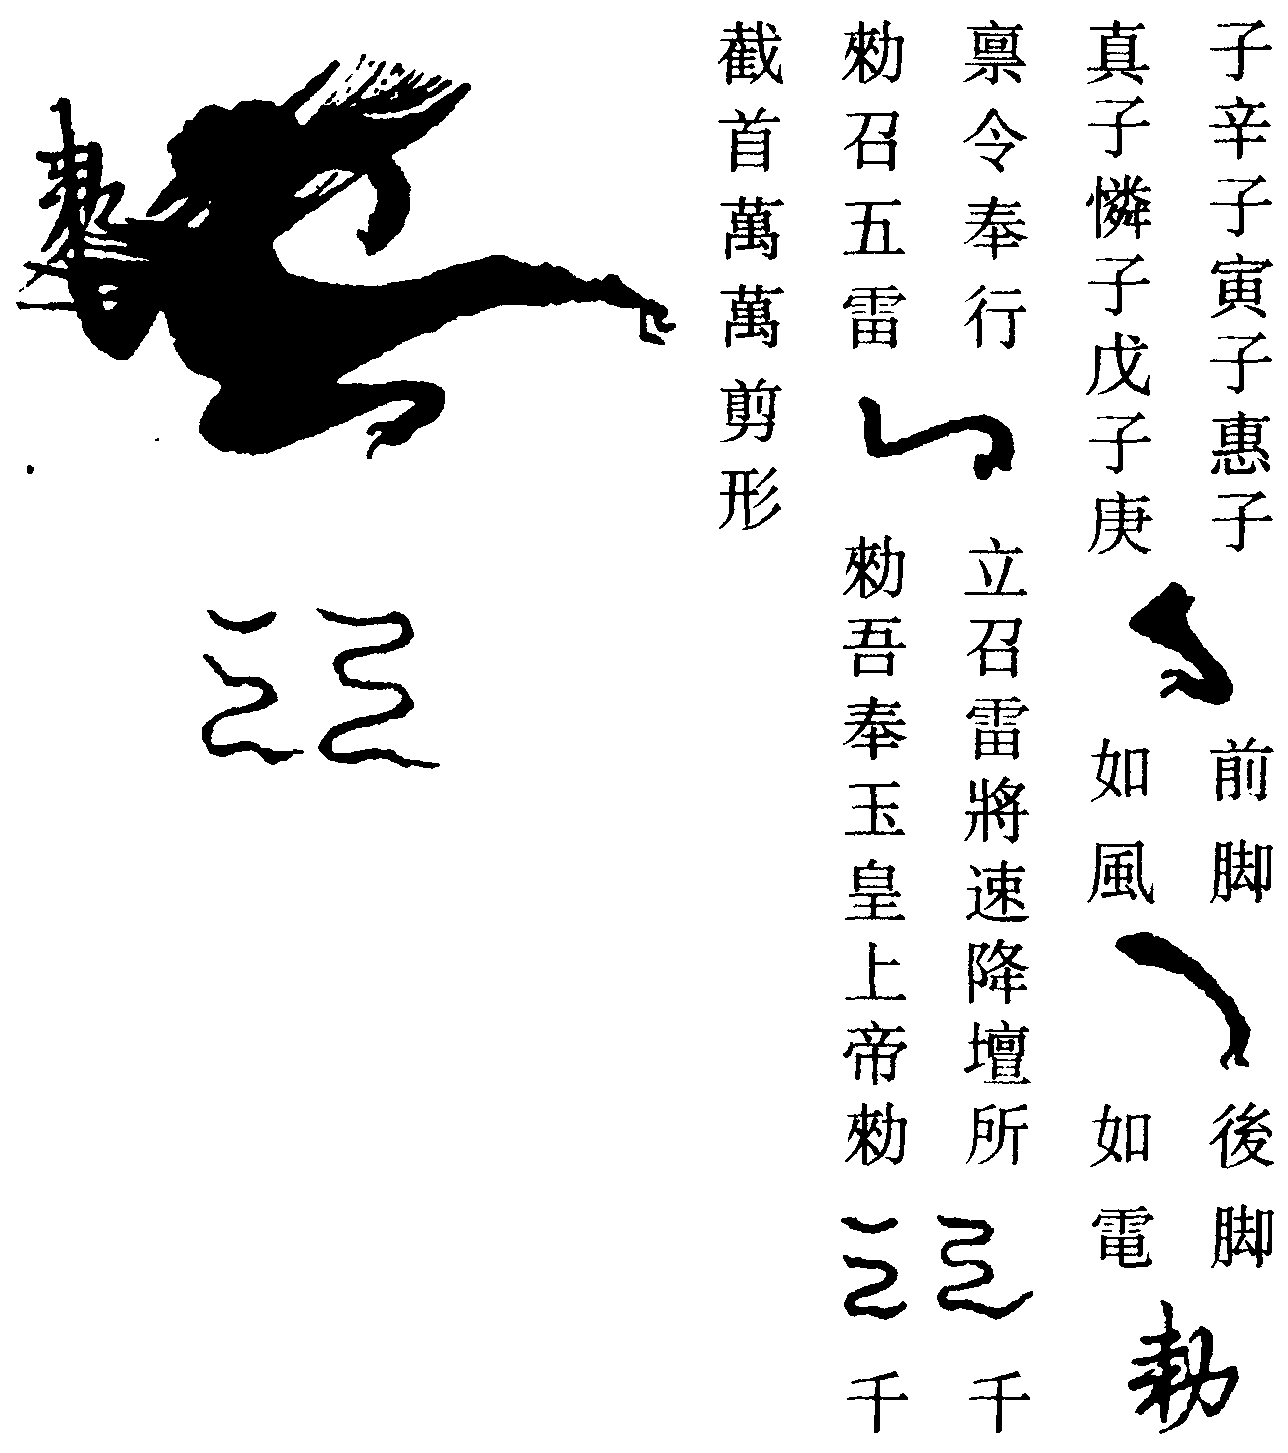 子辛子寅子惠子 前脚 後脚
真子憐子戊子庚 如風 如電
勑
禀令奉行 立召雷將速降壇所 千
勑召五雷 勑吾奉玉皇上帝勑 千
截首萬萬剪形